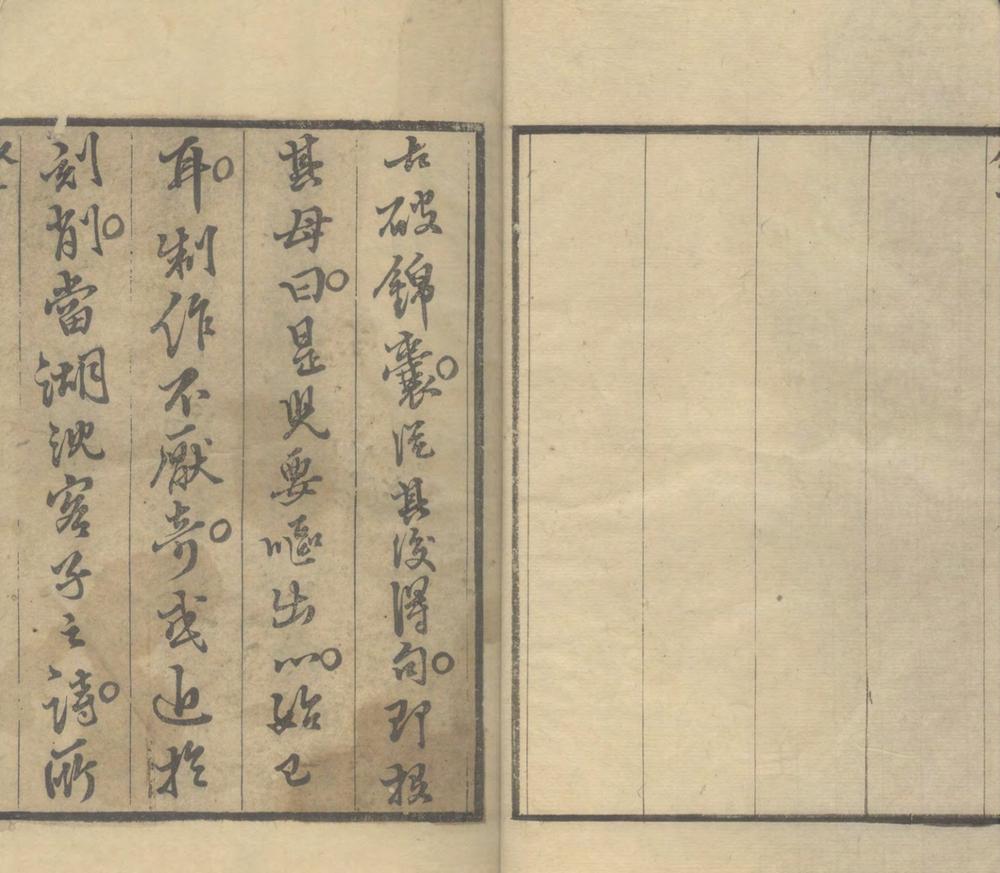 古破錦囊。從其後得句。即投
其母曰。是兒要嘔出心。始已
耳。制作不厭奇。或近於
刻削。當湖沈客子之詩。所